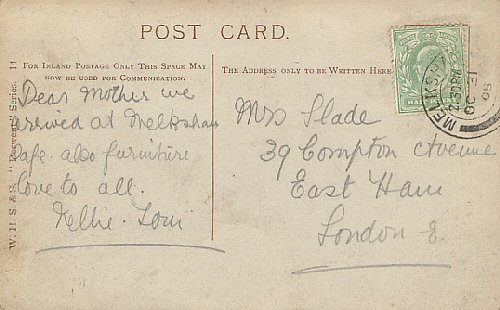 POST CARD.
FOR INLAND POSTAGE ONLY THIS SPACE MAY
NOW BE USED FOR COMMUNICATION.
THE ADDRESS ONLY TO BE WRITTEN HERE
W. H. S. & S. "Series. 11
Dear Mother we
arrived at Melksham
safe. also furniture
love to all.
Nellie.
Mrs Slade
39 Compton Avenue
East Ham
London E.
MELKS
2.30PM
OC 31
08